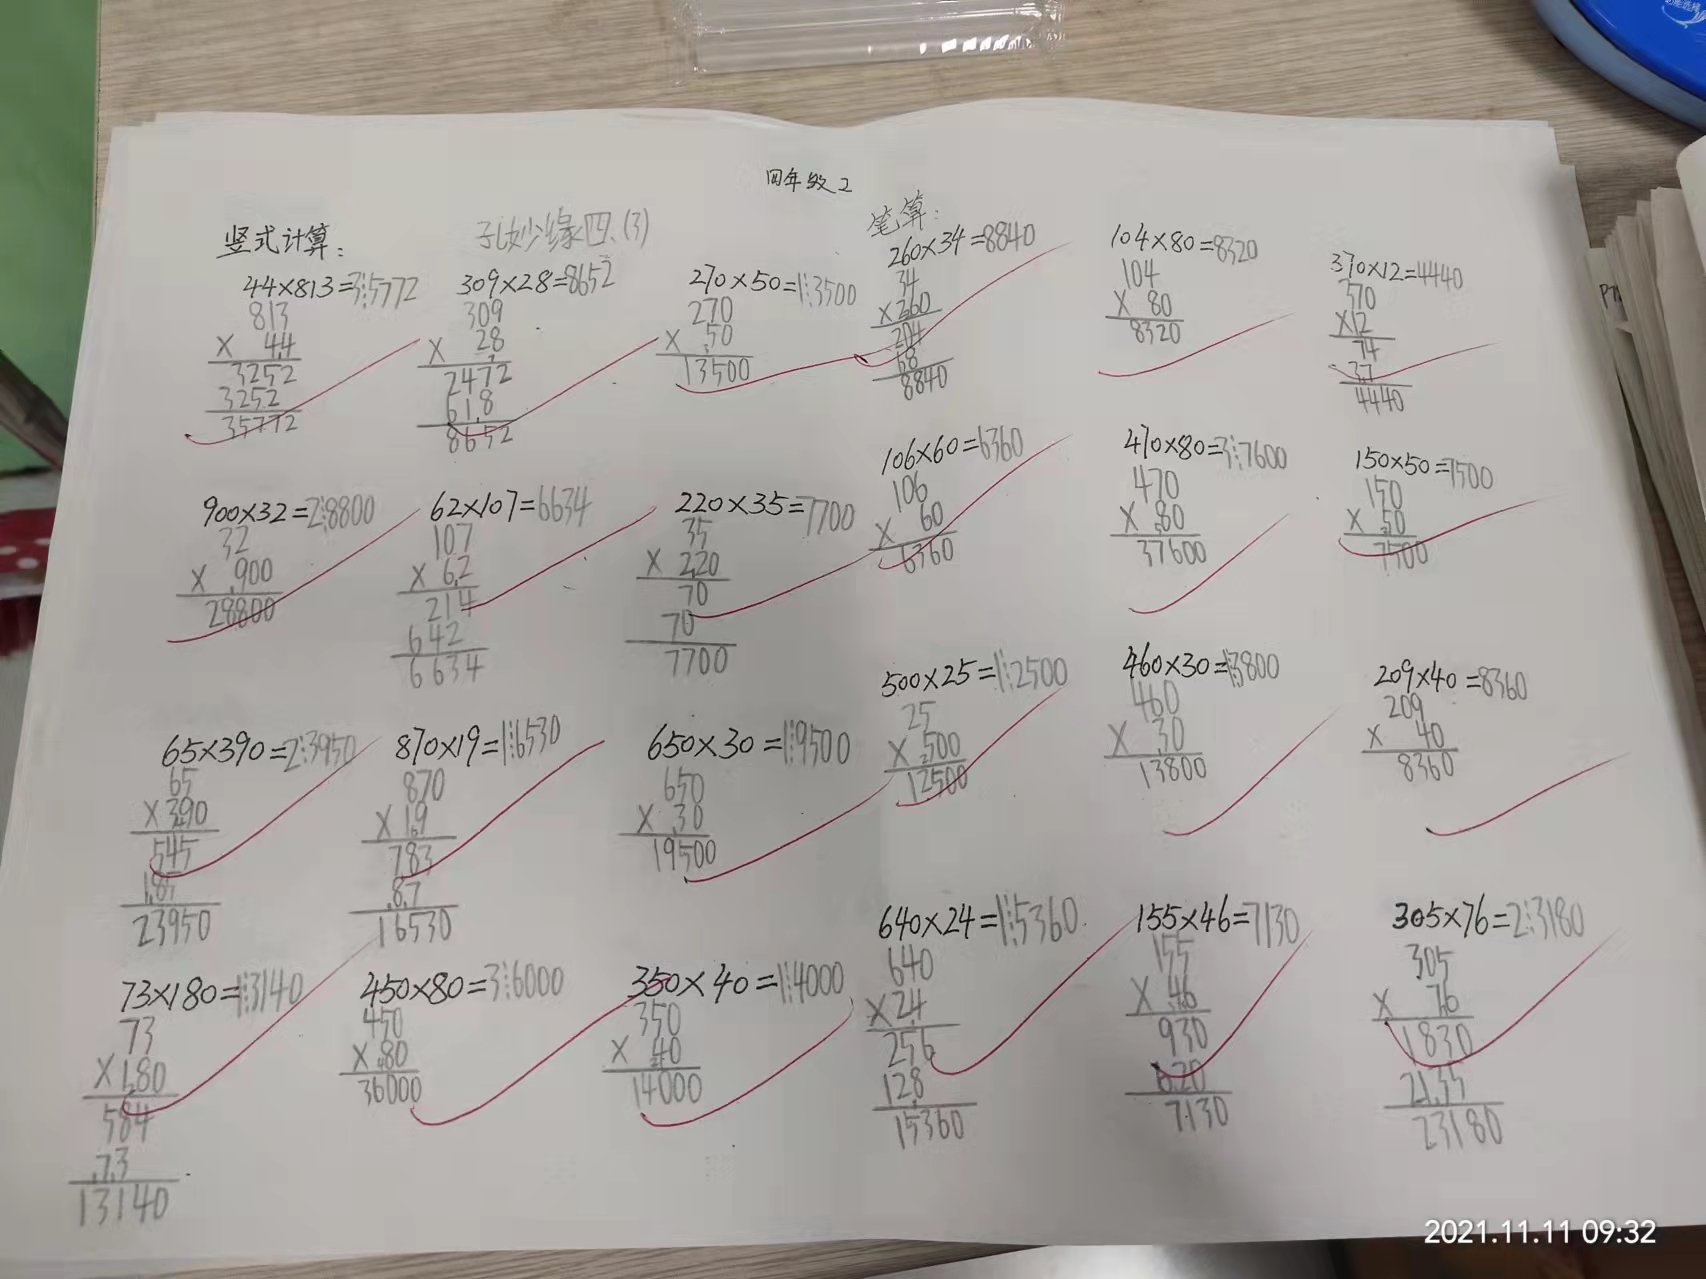 四年级2
竖式计算:
孔妙缘四.(3)
44×813=3⋮5772
813
× 44
3252
3252
35772
309×28=8652
309
× 28
2472
618
8652
270×50=1⋮3500
270
× 50
13500
900×32=2⋮8800
32
× 900
28800
62×107=6634
107
× 62
214
642
6634
220×35=7700
35
× 220
70
70
7700
65×390=2⋮3950
65
× 390
545
185
23950
870×19=1⋮6530
870
× 19
783
87
16530
650×30=1⋮9500
650
× 30
19500
73×180=1⋮3140
73
× 180
584
73
13140
450×80=3⋮6000
450
× 80
36000
350×40=1⋮4000
350
× 40
14000
笔算:
260×34=8840
34
× 260
204
68
8840
104×80=8320
104
× 80
8320
370×12=4440
370
×12
74
37
4440
106×60=6360
106
× 60
6360
470×80=3⋮7600
470
× 80
37600
150×50=7500
150
× 50
7500
500×25=1⋮2500
25
× 500
12500
460×30=1⋮3800
460
× 30
13800
209×40=8360
209
× 40
8360
640×24=1⋮5360
640
× 24
256
128
15360
155×46=7130
155
× 46
930
620
7130
305×76=2⋮3180
305
× 76
1830
2135
23180
2021.11.11 09:32